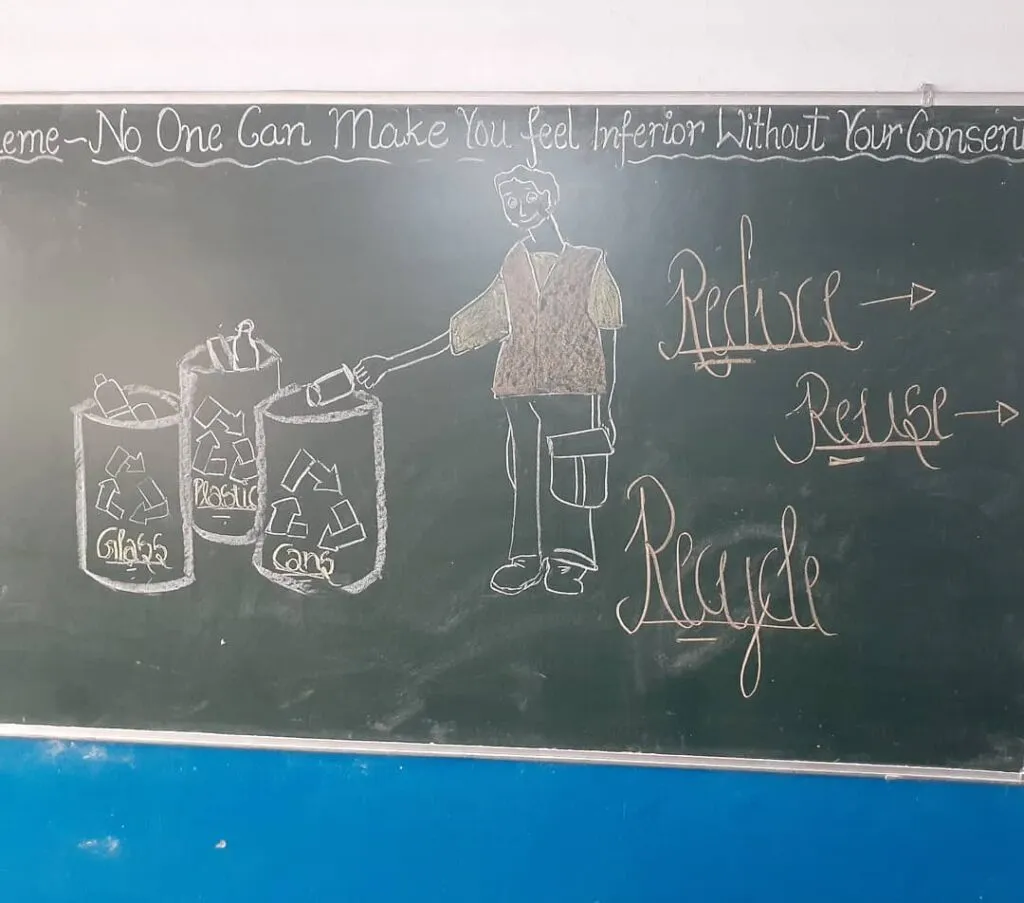 eme~No One Can Make You feel Inferior Without Your Consent
Reduce →
Reuse →
Plastic
Glass
Cans
Recycle